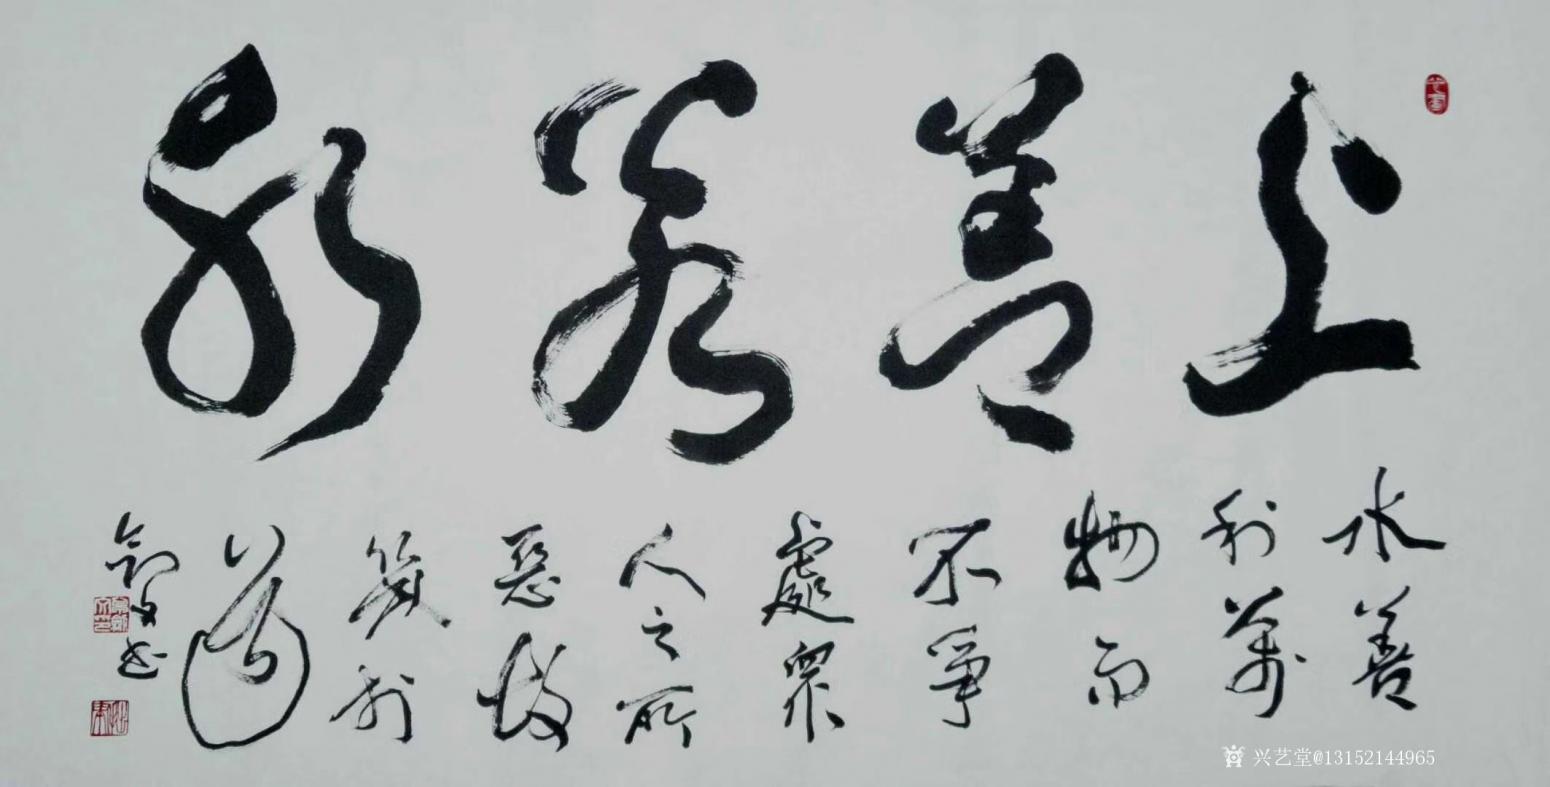 上善若水
水善
利萬
物而
不爭
處眾
人之所
惡故
幾於
道
兴艺堂@13152144965